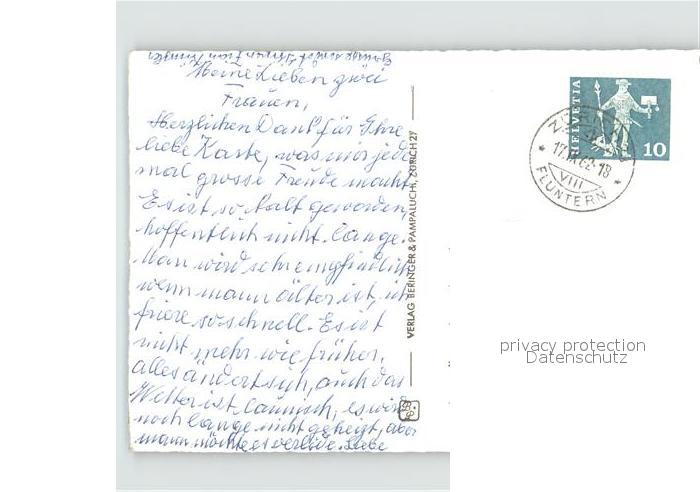 Meine Lieben zwei
Frauen,
Herzlichen Dank für Ihre
liebe Karte, was mir jedes
mal grosse Freude macht.
Es ist so kalt geworden,
hoffentlich nicht lange.
Man wird sehr empfindlich
wenn mann älter ist, ich
friere so schnell. Es ist
nicht mehr wie früher,
alles ändert sich, auch das
Wetter ist launisch, es wird
noch lange nicht geheizt, aber
mann möchte es Liebe
VERLAG BERINGER & PAMPALUCHI, ZÜRICH 27
HELVETIA
10
ZÜRICH
17.IX.62-18
VIII
FLUNTERN
privacy protection
Datenschutz